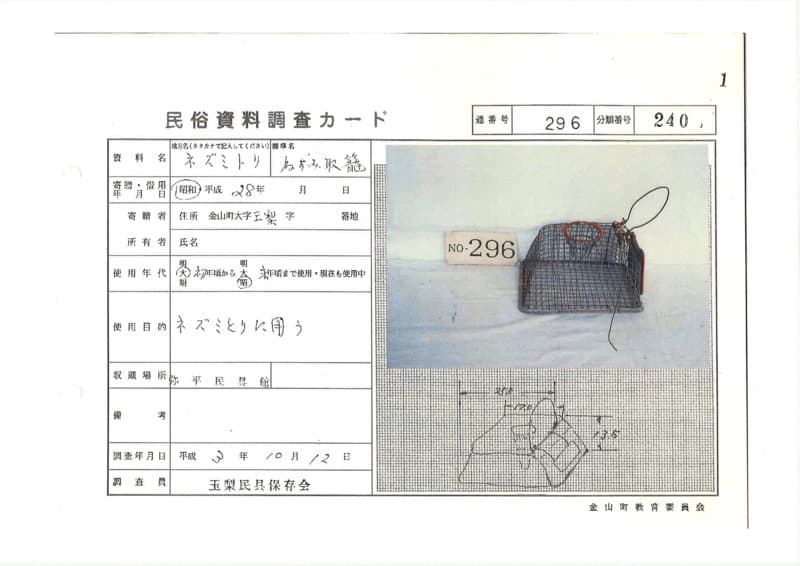 1
民俗資料調査カード
通番号 296 分類番号 240,
資料名 地方名(カタカナで記入してください) ネズミトリ 標準名 ねずみ取籠
寄贈・借用年月日 昭和・平成 28年 月 日
寄贈者 住所 金山町大字玉梨字 番地
所有者 氏名
使用年代 明大昭 初年頃から 明大昭 末年頃まで使用・現在も使用中
使用目的 ネズミとりに用う
収蔵場所 弥平民具館
備考
調査年月日 平成 3 年 10 月 12 日
調査員 玉梨民具保存会
NO-296
25.8
17.0
13.5
金山町教育委員会